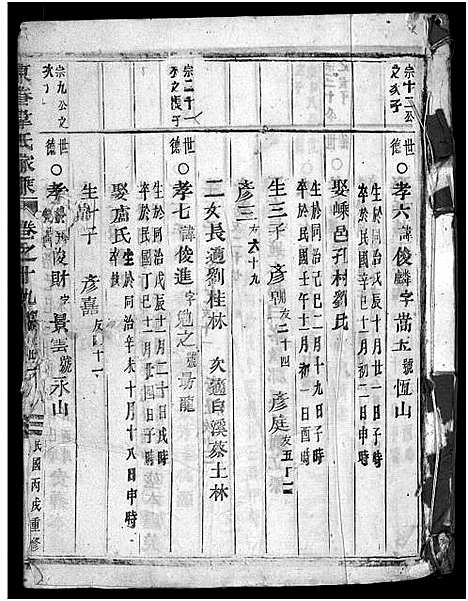 宗十二公之次子
世德○孝六諱俊麟字蒿玉號恆山
生於同治戊辰十月廿一日子時
卒於民國辛巳十月初二日申時
娶嵊邑孔村劉氏
生於同治己巳二月十九日子時
卒於民國壬午十二月初一日酉時
生三子 彥朝友二十四 彥庭友五十一
彥三方六十九
二女長適劉桂林 次適白溪蔡土林
宗二十一公之長子
世德○孝七諱俊進字勉之號易龍
生於同治戊辰十一月二十日戌時
卒於民國丁巳十二月初十日子時
娶盧氏生於同治辛未十月十八日申時
生一子 彥嘉友四十一
宗九公之次子
世德○孝諱俊財字景雲號永山
東眷李氏家乘 卷之十九 世
民國丙戌重修